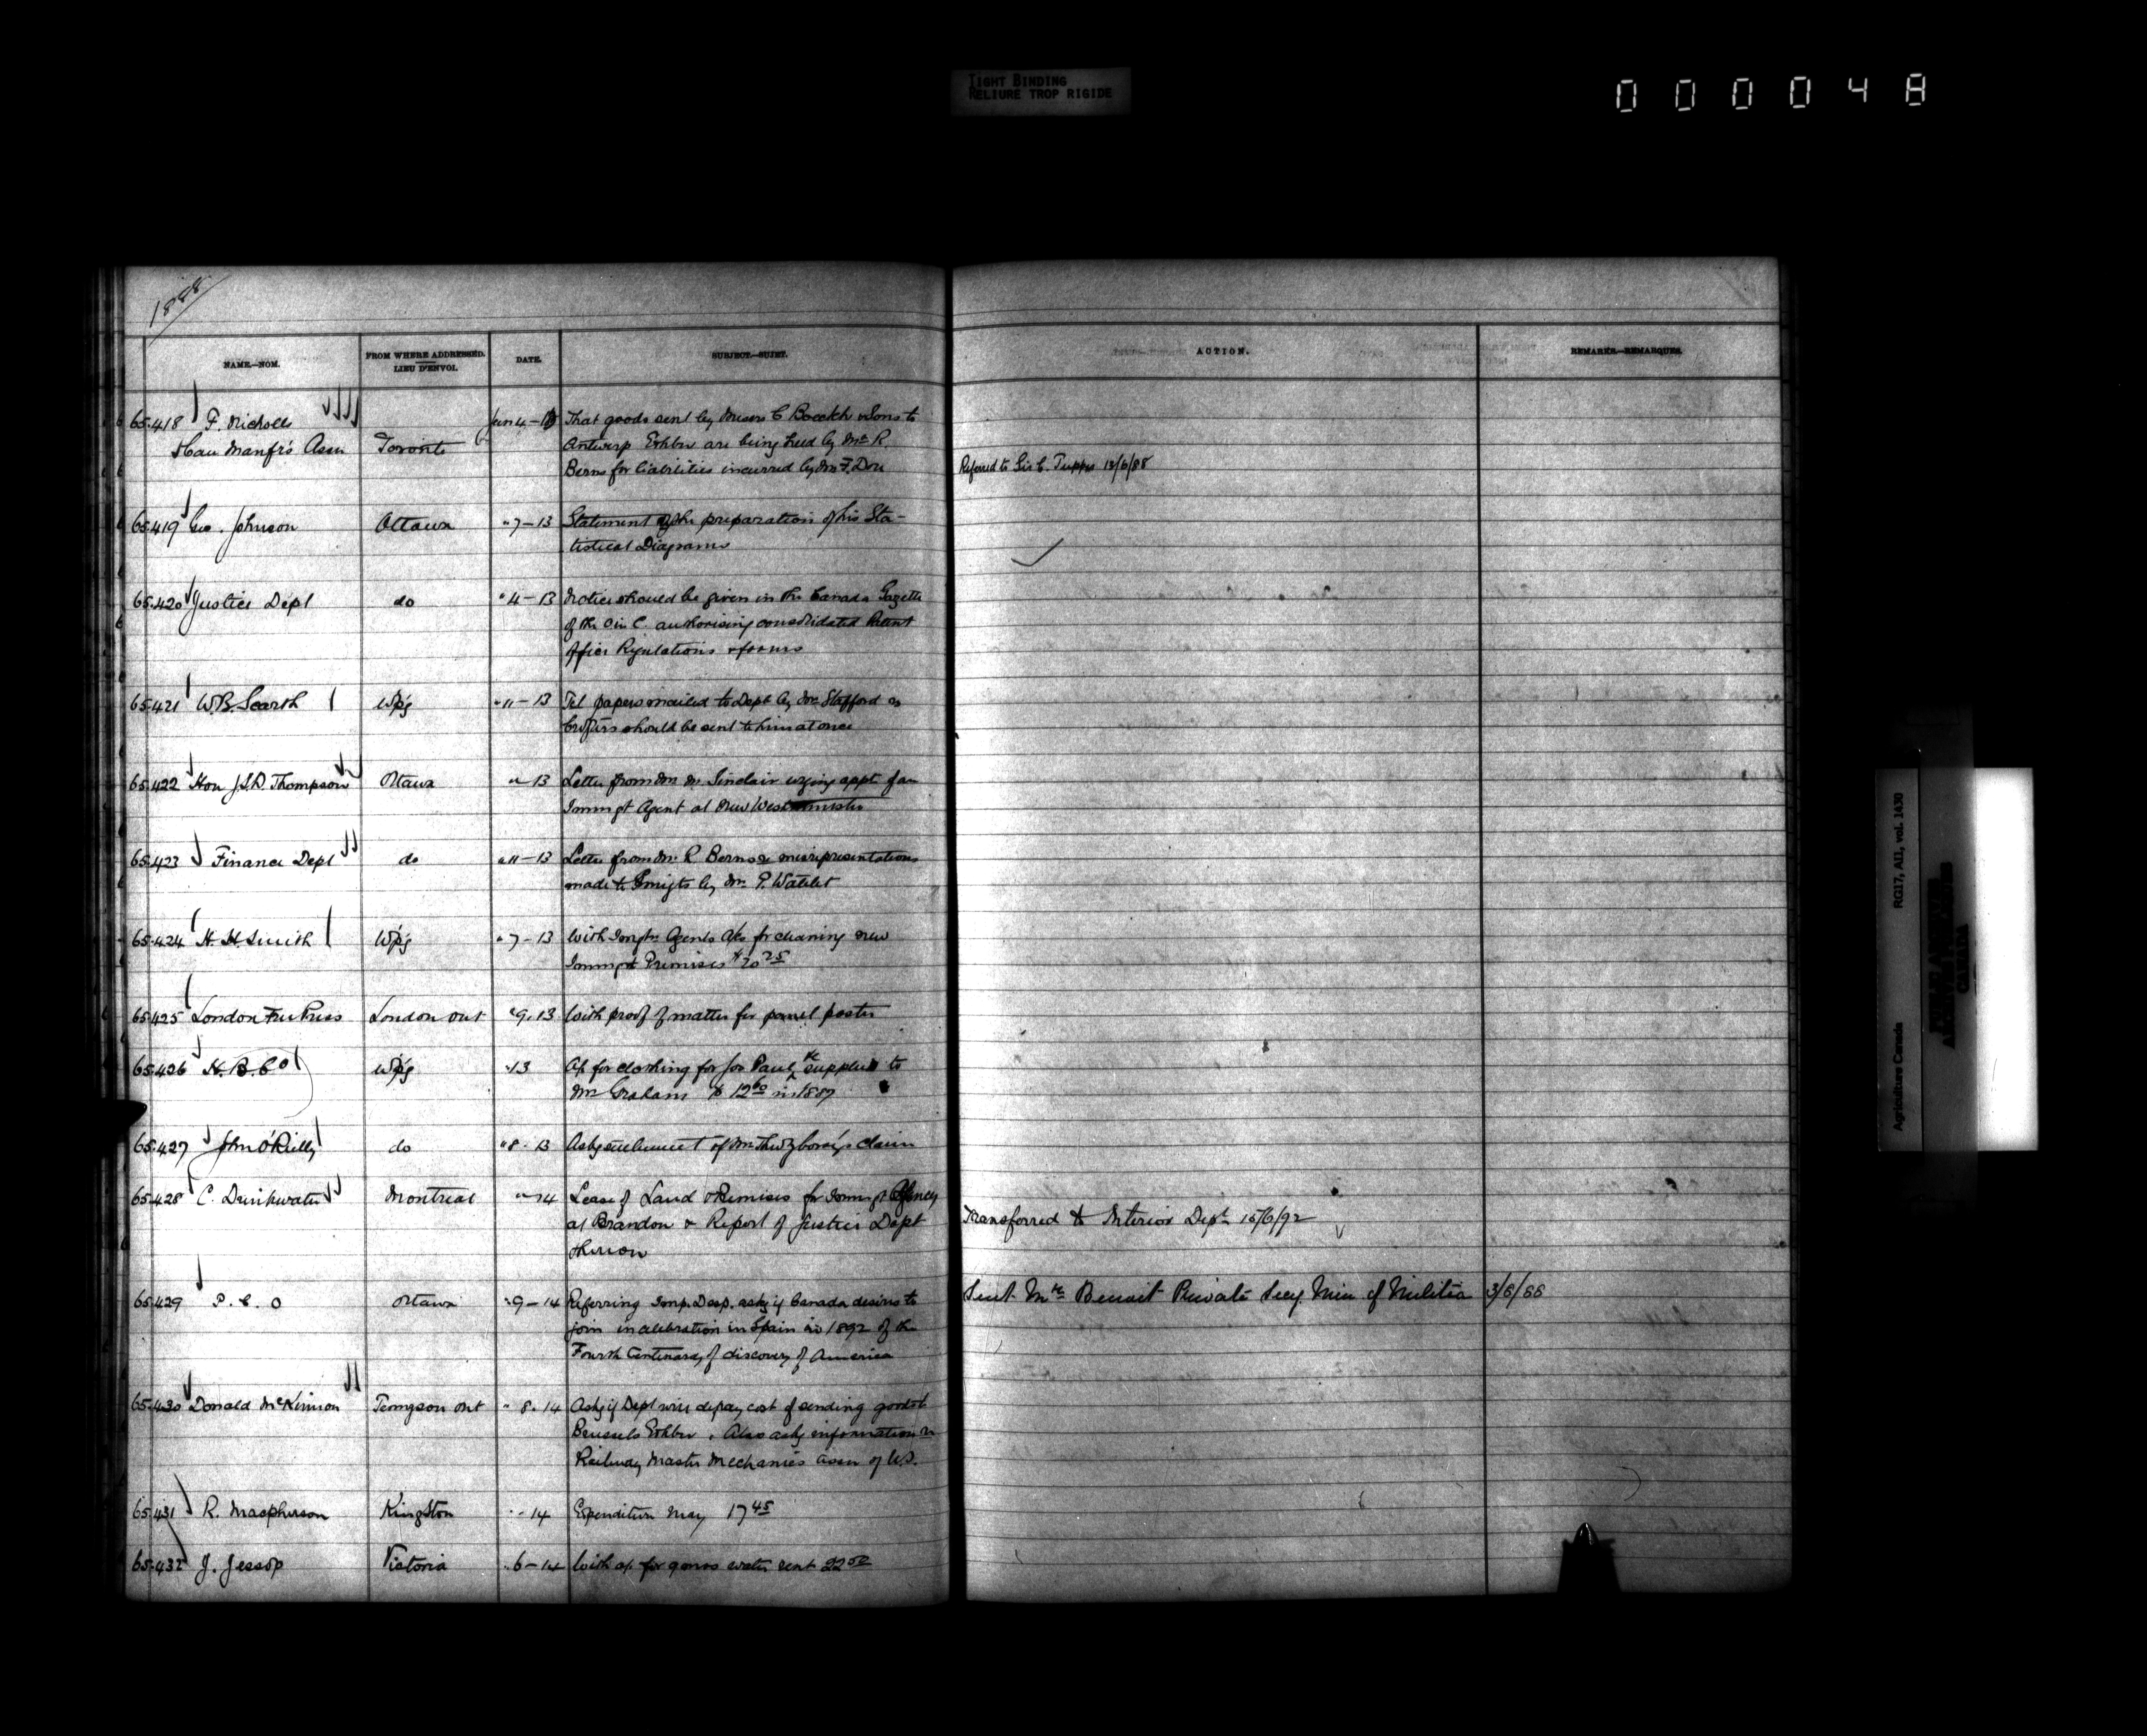 TIGHT BINDING
RELIURE TROP RIGIDE
000048
1888
NAME.—NOM.
FROM WHERE ADDRESSED.
LIEU D'ENVOI.
DATE.
SUBJECT.—SUJET.
ACTION.
REMARKS—REMARQUES.
65.418 F. Nicholls Jun 4-13 That goods sent by Messrs C Boeckh & Sons to
Can Manfr's Assn Toronto Antwerp Exhbn are being held by Mr R.
Berns for liabilities incurred by Mr F. Dore Referred to Sir C. Tupper 13/6/88
65.419 Geo. Johnson Ottawa " 7-13 Statement of the preparation of his Sta-
tistical Diagrams
65.420 Justice Dept do " 4-13 Notice should be given in the Canada Gazette
of the O in C. authorising consolidated Patent
Office Regulations & forms
65.421 W.B. Scarth Wpg " 11-13 Tel papers mailed to Dept by Mr Stafford as
should be sent to him at once
65.422 Hon J.S.D. Thompson Ottawa " 13 Letter from Mr Sinclair urging appt of an
Immigt Agent at New Westminster
65.423 Finance Dept do " 11-13 Letter from Mr R Berns re misrepresentations
made to Emigts by Mr P. Watelet
65.424 H. H. Smith Wpg " 7-13 With Immgtn Agents A/cs for cleaning new
Immigt Premises $70 25
65.425 London Free Press London Ont " 9.13 With proof of matter for panel poster
65.426 H.B.Co Wpg 13 A/c for clothing for Jos Paul, &c supplied to
Mr Graham $ 12 60 in 1887
65.427 John O'Reilly do " 8.13 Asks settlement of Mr claim
65.428 C. Drinkwater Montreal " 14 Lease of Land & Premises for Immigt Agency
at Brandon & Report of Justice Dept Transferred to Interior Dept 15/6/92
thereon
65.429 P. C. O Ottawa " 9-14 Referring Imp. Desp. askg if Canada desires to Sent Mr Benoit Private Secy. Min of Militia 3/8/88
join in celebration in Spain in 1892 of the
Fourth Centenary of discovery of America
65.430 Donald McKinnon Ont " 8.14 Askg if Dept will defray cost of sending goods to
Brussels Exhbn. Also askg information re
Railway Master Mechanics Assn of U.S.
65.431 R. Macpherson Kingston " - 14 Expenditure May 17 45
65.432 J. Jessop Victoria " 6-14 With a/c for water rent 22 50
Agriculture Canada RG17, AII, vol. 1430